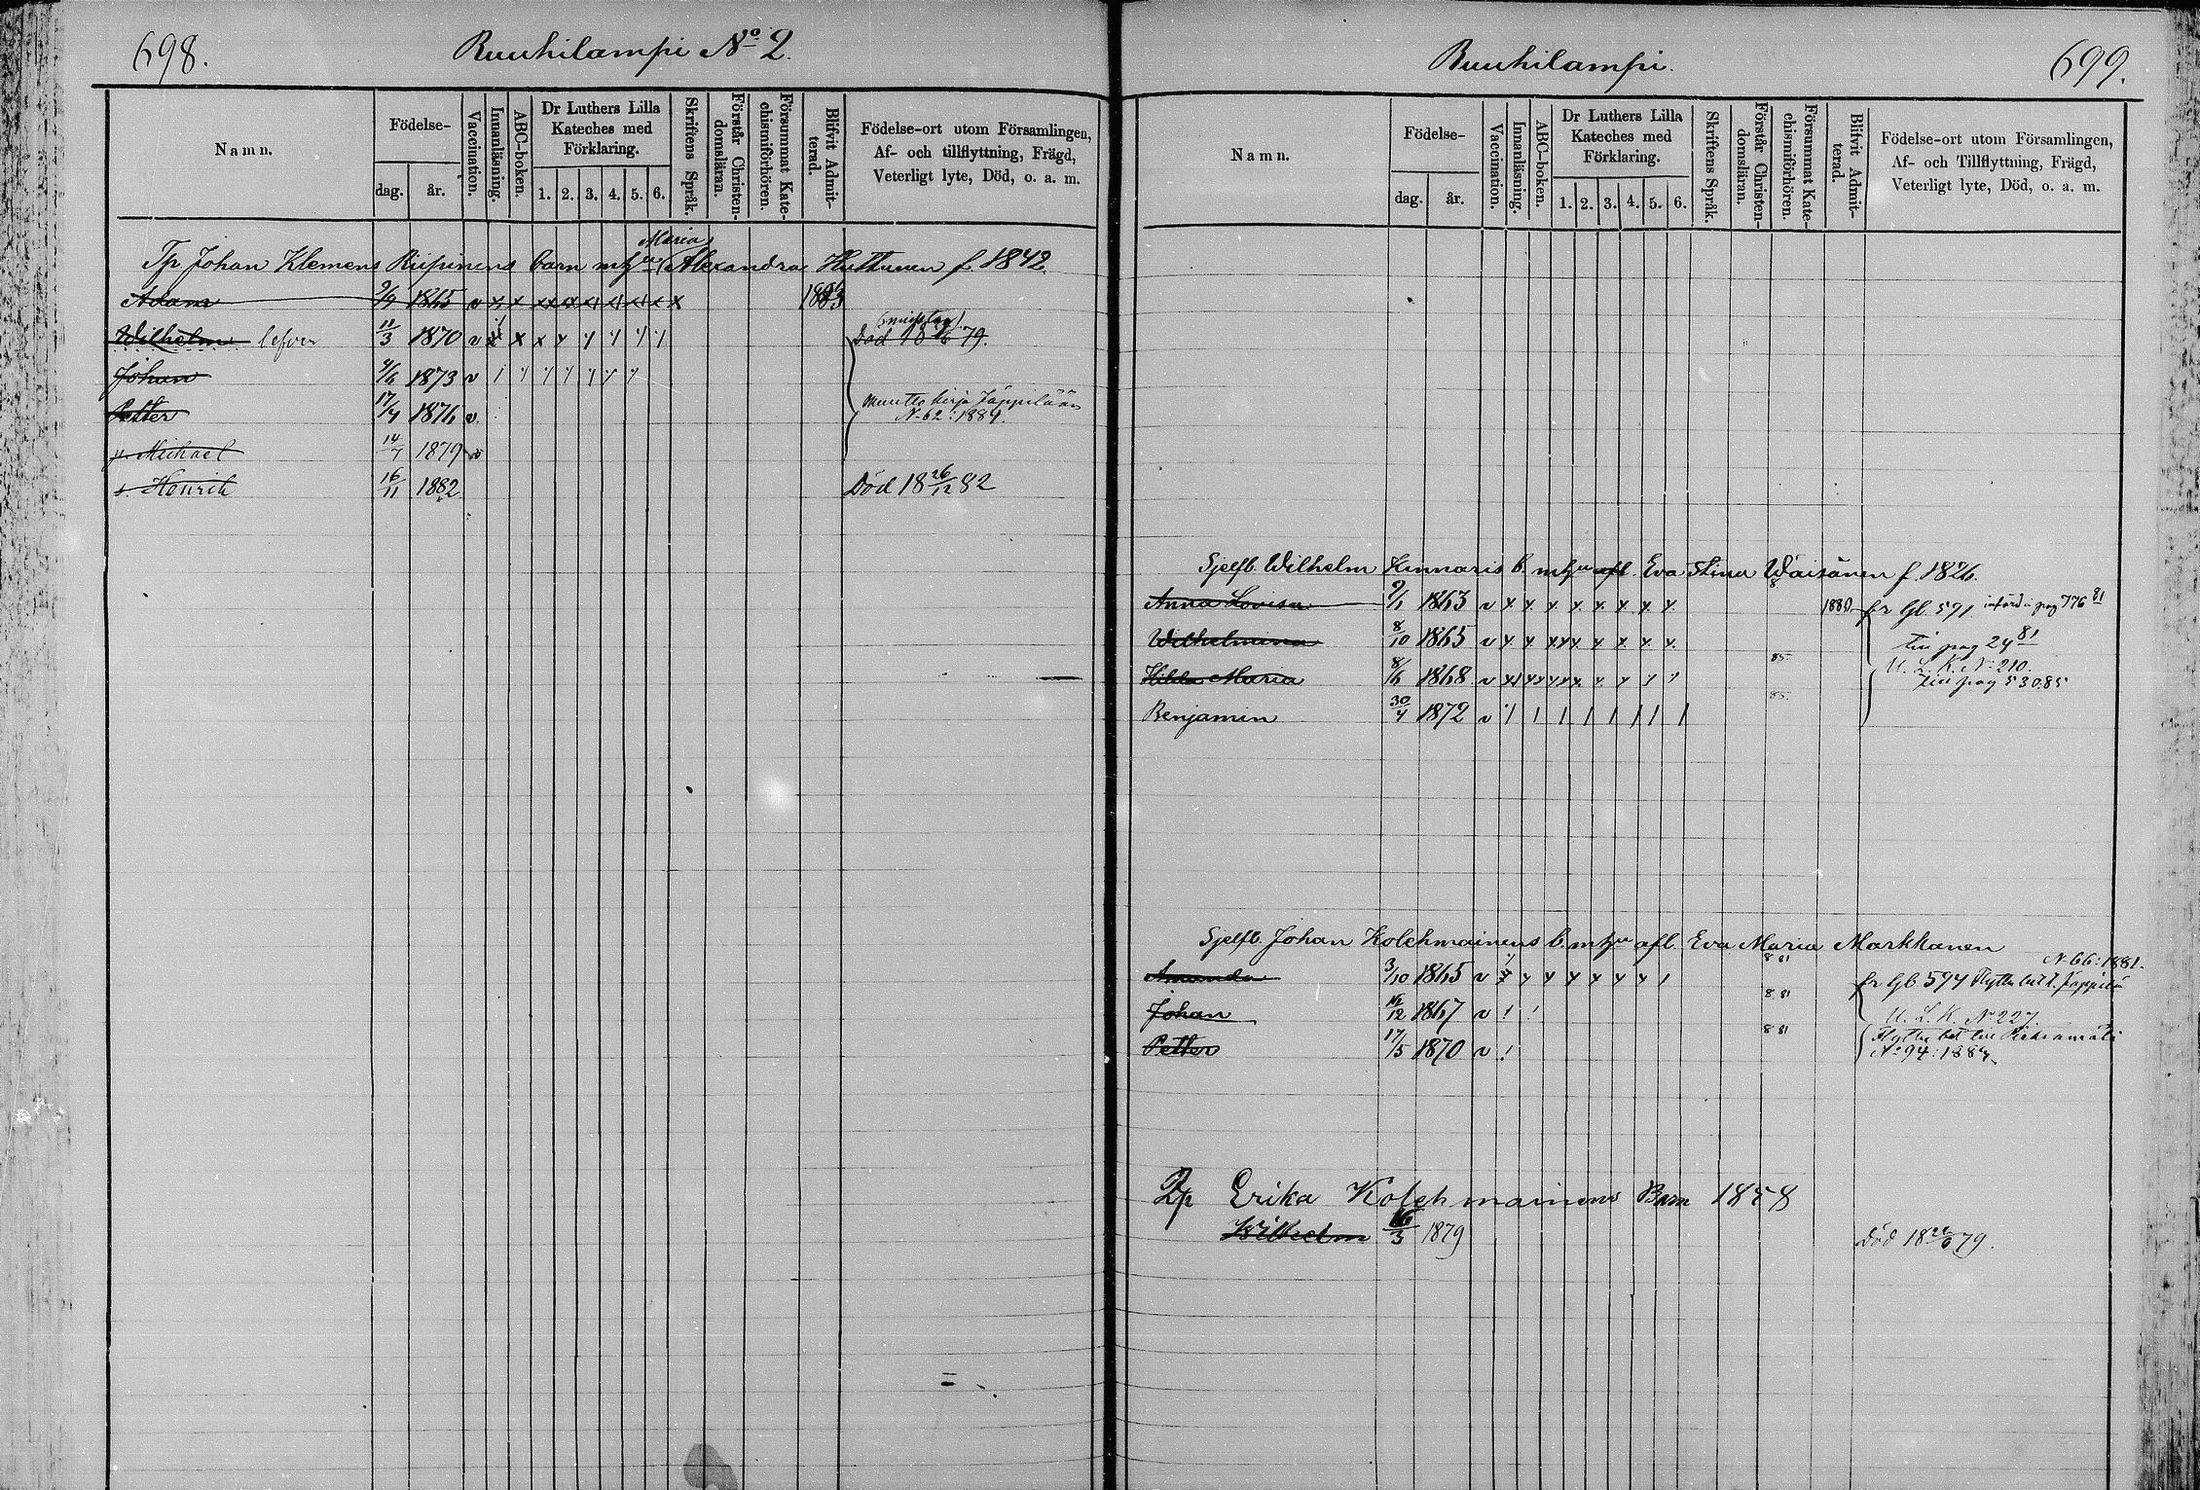 698.
Ruuhilampi No 2.
Namn.
Födelse-
dag.
år.
Vaccination.
Innanläsning.
ABC-boken.
Dr Luthers Lilla
Kateches med
Förklaring.
1. 2. 3. 4. 5. 6.
Skriftens Språk.
Förstår Christen-
domsläran.
Försummat Kate-
chismiförhören.
Blifvit Admit-
terad.
Födelse-ort utom Församlingen,
Af- och tillflyttning, Frägd,
Veterligt lyte, Död, o. a. m.
Maria
Tp Johan Klemens Riipinens barn m hu Alexandra Huttunen f. 1842
Adam 9/9 1865 v x x x x x x x x x 1883
Wilhelm lefver 11/3 1870 v x x x
(misstag)
Död
79.
Johan 4/6 1873 v
Petter 17/4 1876 v.
muutto kirja Jäppilään
N. 62: 1884.
Michael 14/7 1879 v
Henrik 16/11 1882 Död 18 26/12 82
Ruuhilampi.
699.
Namn.
Födelse-
dag.
år.
Vaccination.
Innanläsning.
ABC-boken.
Dr Luthers Lilla
Kateches med
Förklaring.
1. 2. 3. 4. 5. 6.
Skriftens Språk.
Förstår Christen-
domsläran.
Försummat Kate-
chismiförhören.
Blifvit Admit-
terad.
Födelse-ort utom Församlingen,
Af- och Tillflyttning, Frägd,
Veterligt lyte, Död, o. a. m.
Sjelfb. Wilhelm Kinnaris b. m hu afl. Eva Stina Wäisänen f. 1826.
Anna Lovisa 9/1 1863 v x x x x x x x 8 1880 fr Gb. 591. införd i pag 776 81
Wilhelmina 8/10 1865 v x x x x x x x x till pag 24 81
Hilda Maria 8/6 1868 v 85 U. L. K. No 210.
till pag 530 85
Benjamin 30/4 1872 v 85
Sjelfb. Johan Kolehmainens b. m hu afl. Eva Maria Markkanen
N. 66: 1881.
Amanda 3/10 1865 v 8 81 fr Gb 594 Flytt. bet. t. Jäppilä
Johan 12 1867 v 8 81 U. L. K. No 227
Petter 17/5 1870 v 8 81 Flytt. bet till Pieksamäki
No 94: 1884
Tp Erika Kolehmainens Barn 1858
Wilhelm 16/3 1879 Död 18 79.